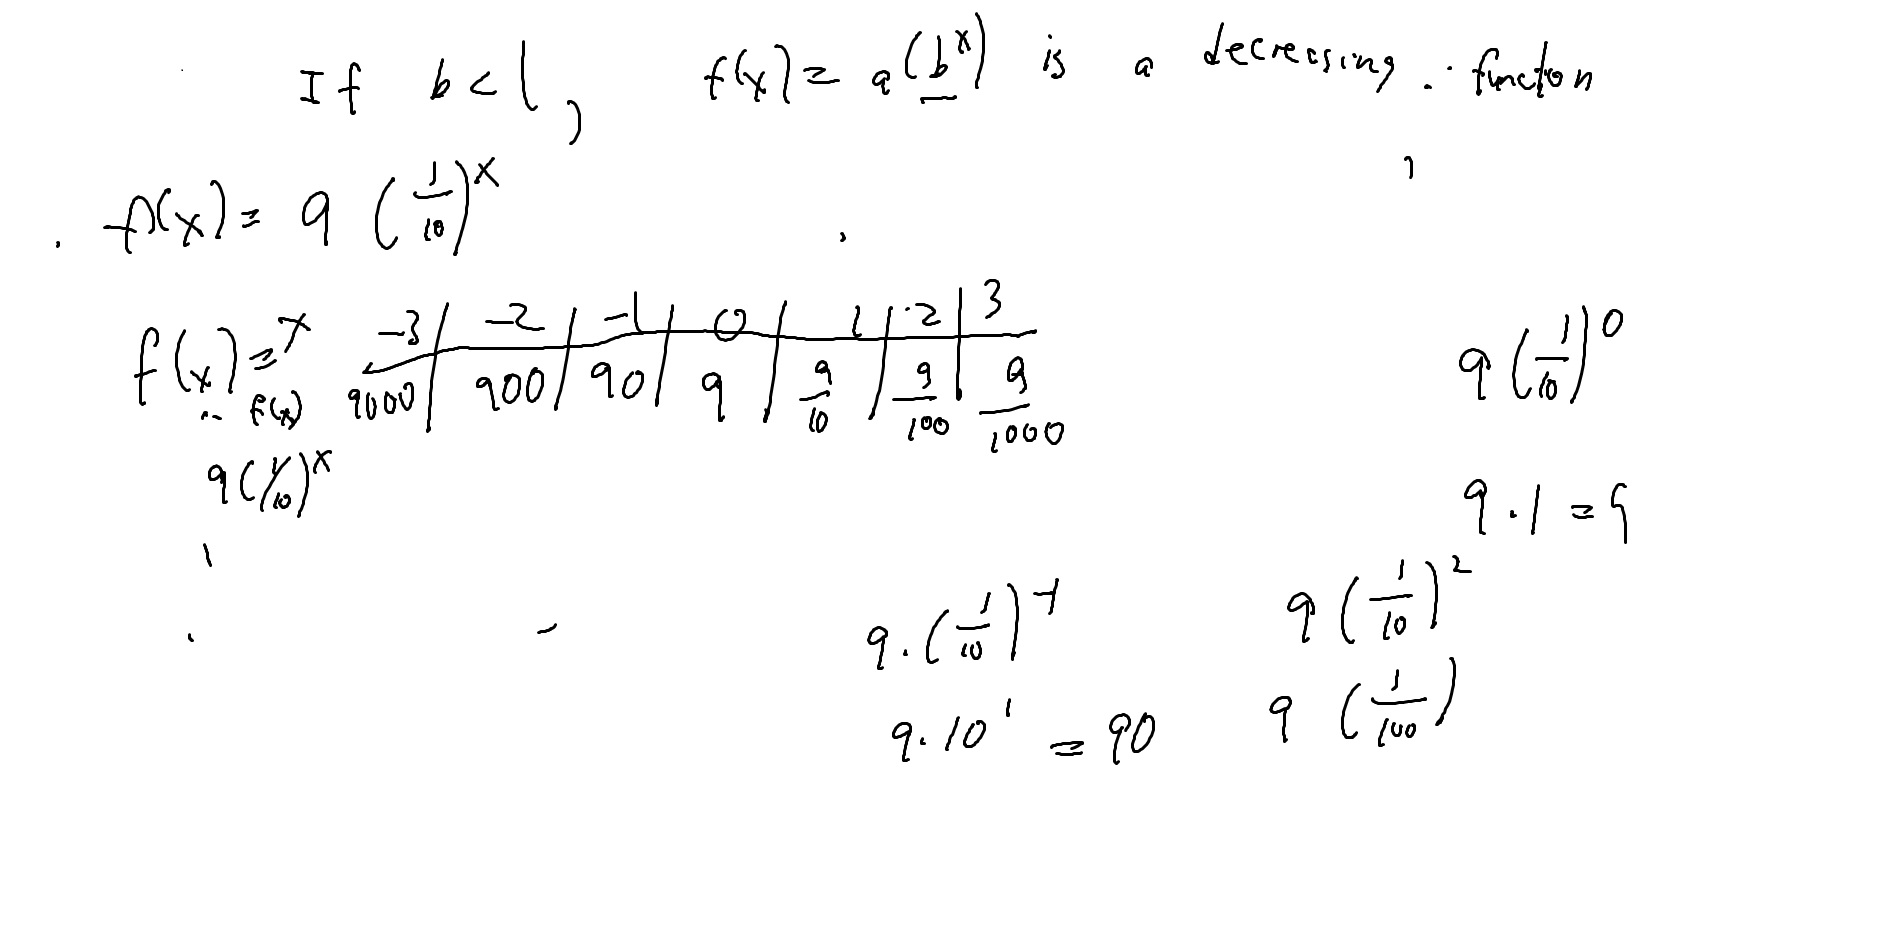 If b < 1, f(x) = a(b^x) is a decreasing function
f(x) = 9 (1/10)^x
x -3 | -2 | -1 | 0 | 1 | 2 | 3
f(x) = f(x) 9000 | 900 | 90 | 9 | 9/10 | 9/100 | 9/1000
9(1/10)^x
9 (1/10)^0
9 . 1 = 9
9 . (1/10)^-1
9 . 10^1 = 90
9 (1/10)^2
9 (1/100)